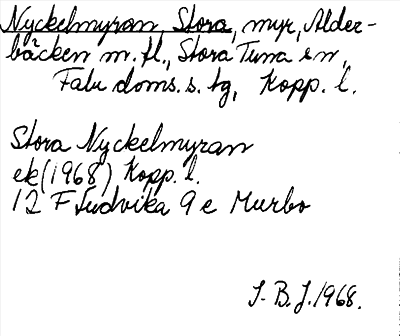 Nyckelmyran, Stora, myr, Alder-
bäcken m. fl., Stora Tuna sn,
Falu doms. s. tg, Kopp. l.
Stora Nyckelmyran
ek (1968) Kopp. l.
12 F Ludvika 9 e Murbo
I. B. J. 1968.